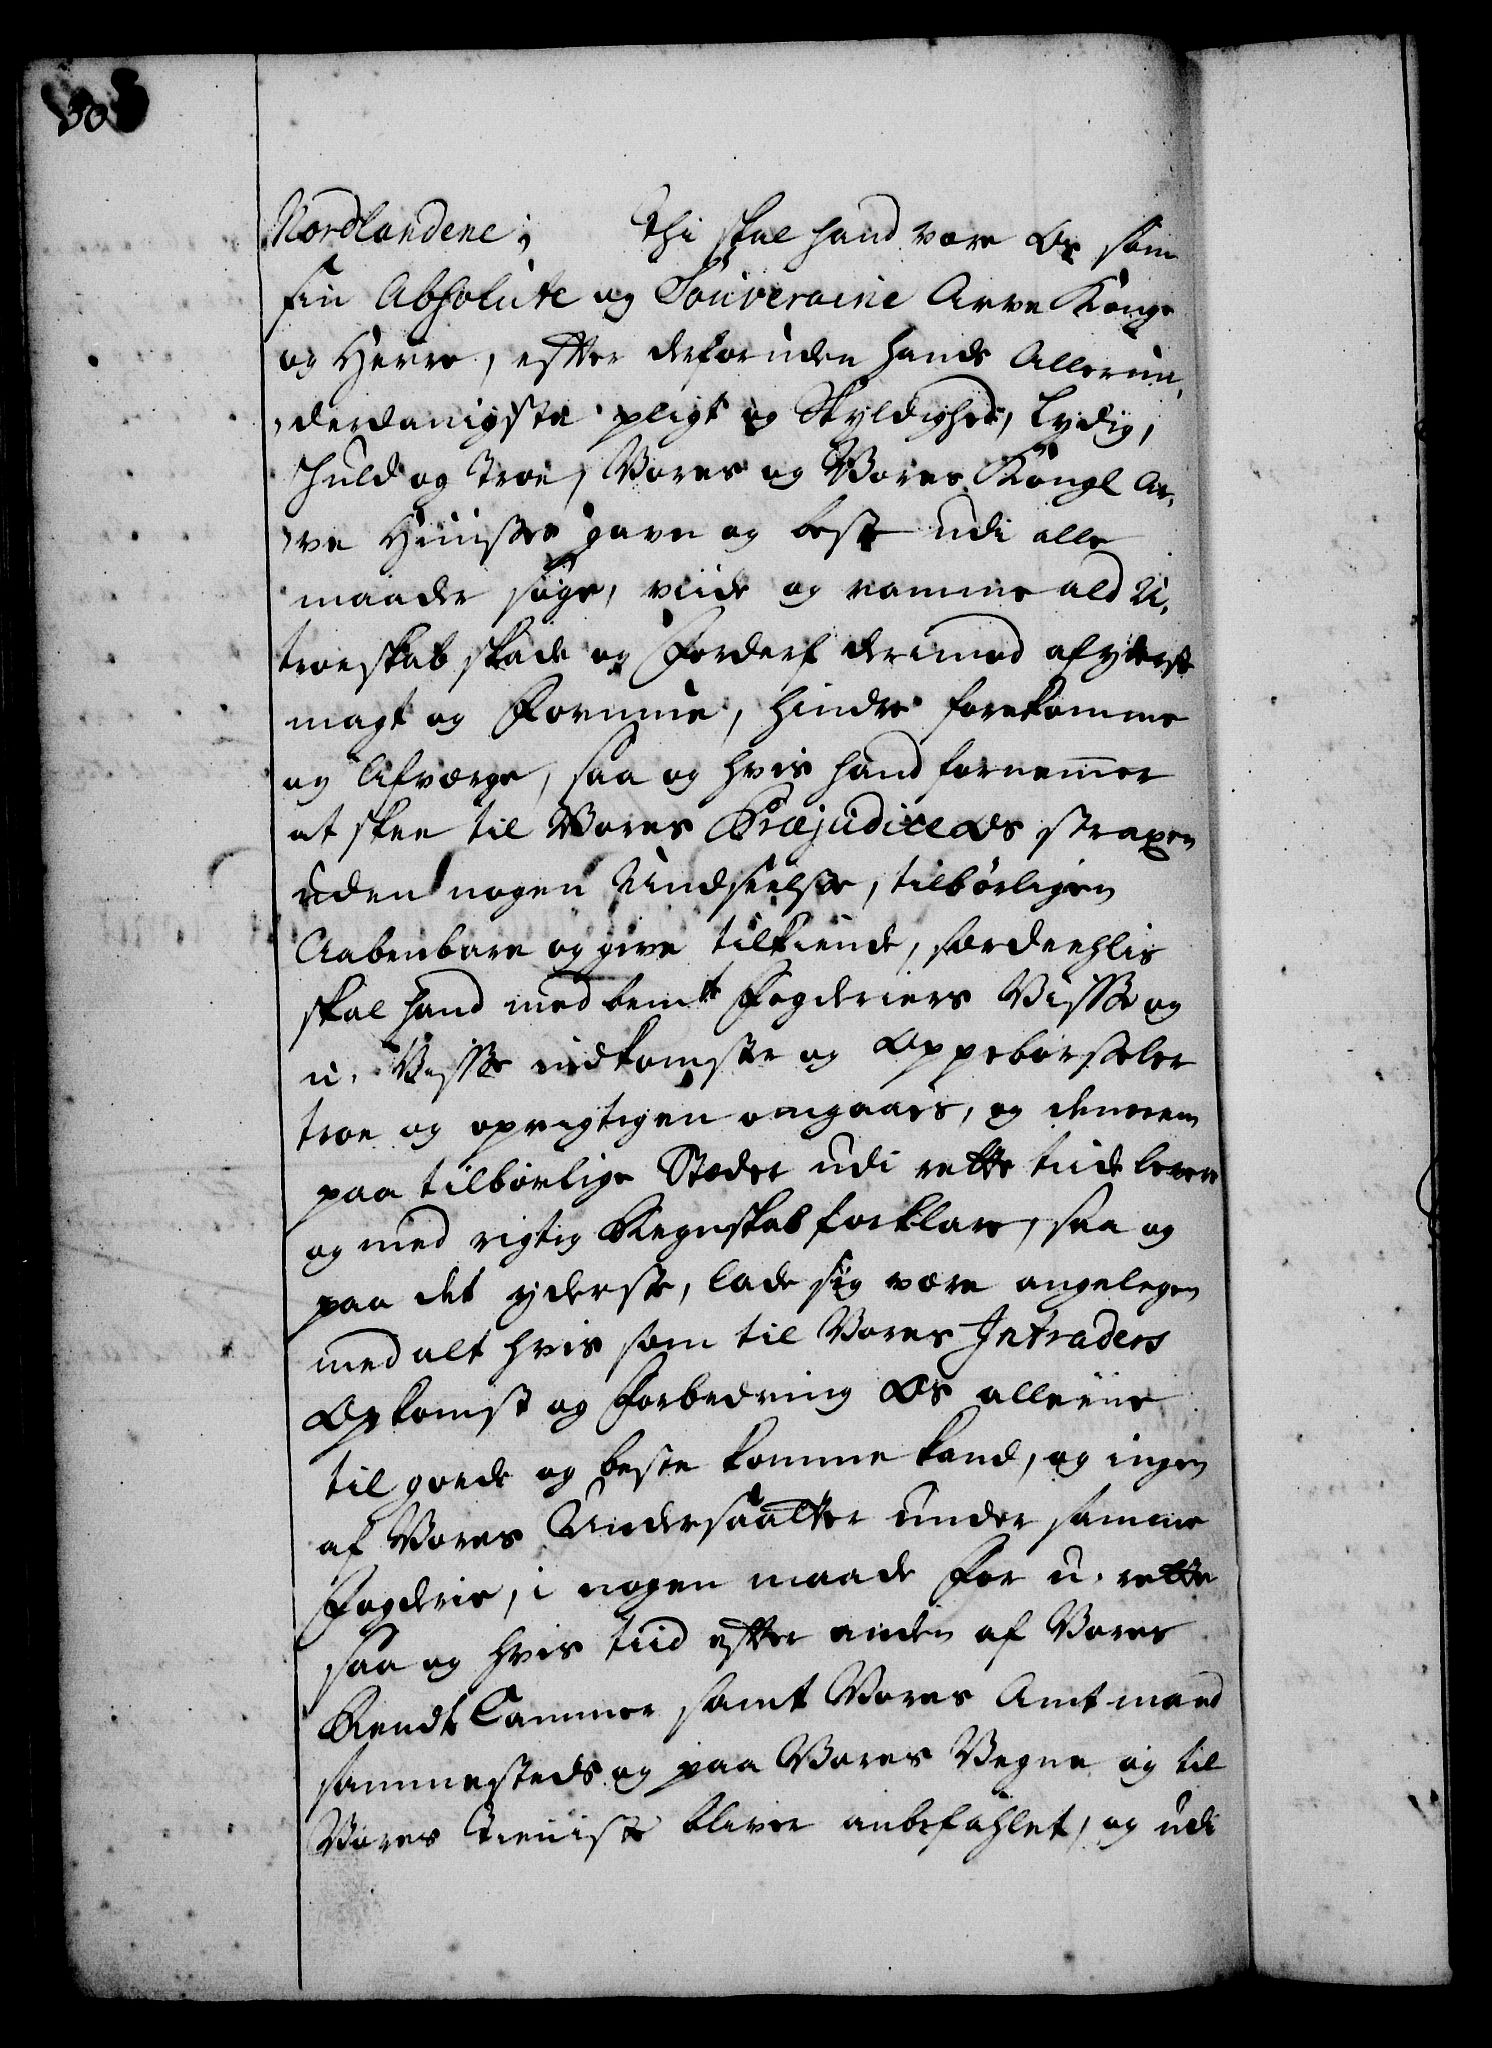 30
Nordlandene; Thi skal hand være Os som
sin Absolute og Souveraine Arve Konge
og Herre, efter derforuden hands Allerun,
,derdanigste pligt og Skyldighed, Lydig,
Huld og Troe, Vores og Vores Kongl Ar,
,ve Huusses gavn og beste udi alle
maader søge, viide og ramme ald U,
troeskab skade og Forderf derimod af yderste
magt og Formue, hindre forekomme
og Afværge, saa og hvis hand fornemmer
at skee til Vores Præjudice Os straxen
uden nogen Undseelse, tilbørligen
Aabenbare og give tilkiende, særdeehlis
skal hand med bemte Fogderiers Visse og
u. Visse indkomster og Oppebørseler
troe og oprigtigen omgaaes, og dennem
paa tilbørlige Steder udi rette tiide levere
og med rigtig Regnskab forklare, saa og
paa det yderste, lade sig være angelegen
med alt hvis som til Vores Intraders
Opkomst og Forbedring Os alleene
til goede og beste komme kand, og ingen
af Vores Undersaatter under samme
Fogderie, i nogen maade For u. rette
saa og hvis tiid efter anden af Vores
Rendte Cammer samt Vores Amtmand
sammesteds og paa Vores Vegne og til
Vores Tieniste bliver anbefahlet, og udi